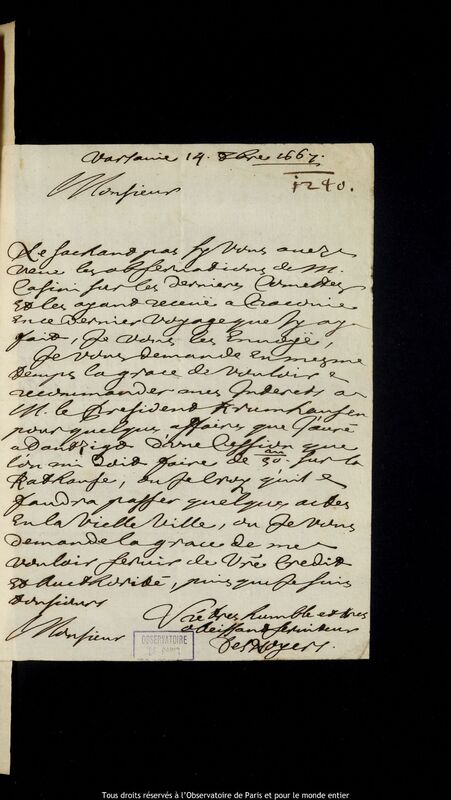 Varsavie 14. Xbre 1667.
1240.
Monsieur
Ne sachand pas sy vous avez
veue les observations de M.
Casini sur les dernieres Comettes
et les ayant receue a Cracovie
en ce dernier voyage que j'y ay
fait, je vous les envoye,
Je vous demande en mesme
temps la grace de vouloir
recommander mes interets a
M. le President Krumhausen
pour quelques affaires que j'auré
a Dantzigt d'une Cession que
l'on mi doit faire de sur la
Rathause, ou je croy qu'il
faudra passer quelques actes
en la Vielle Ville, ou je vous
demande la grace de me
vouloir servir de Vre Credit
et Aucthorité, puis que je suis
tousjours
Monsieur
Vre tres humble et tres
obeissand serviteur
Des Noyers.
OBSERVATOIRE
DE PARIS
Tous droits réservés à l'Observatoire de Paris et pour le monde entier